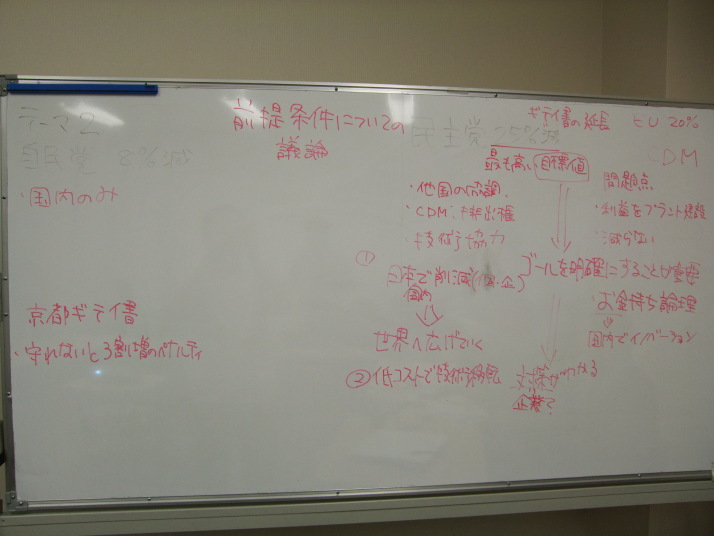 テーマ2
自民党 8%減
・国内のみ
京都ギテイ書
・守れないと3割増のペナルティ
前提条件についての
議論
民主党 25%減
最も高い目標値
・他国の協調
・CDM:排出権
・技術協力
①
日本で削減(国・企)
国内
世界へ広げていく
②低コストで技術移転
ゴールを明確にすることが重要
対策がかわる
企業?
ギテイ書の延長 EU 20%
CDM
問題点
・利益をプラント建設
・減らない
お金持ち論理
国内でイノベーション